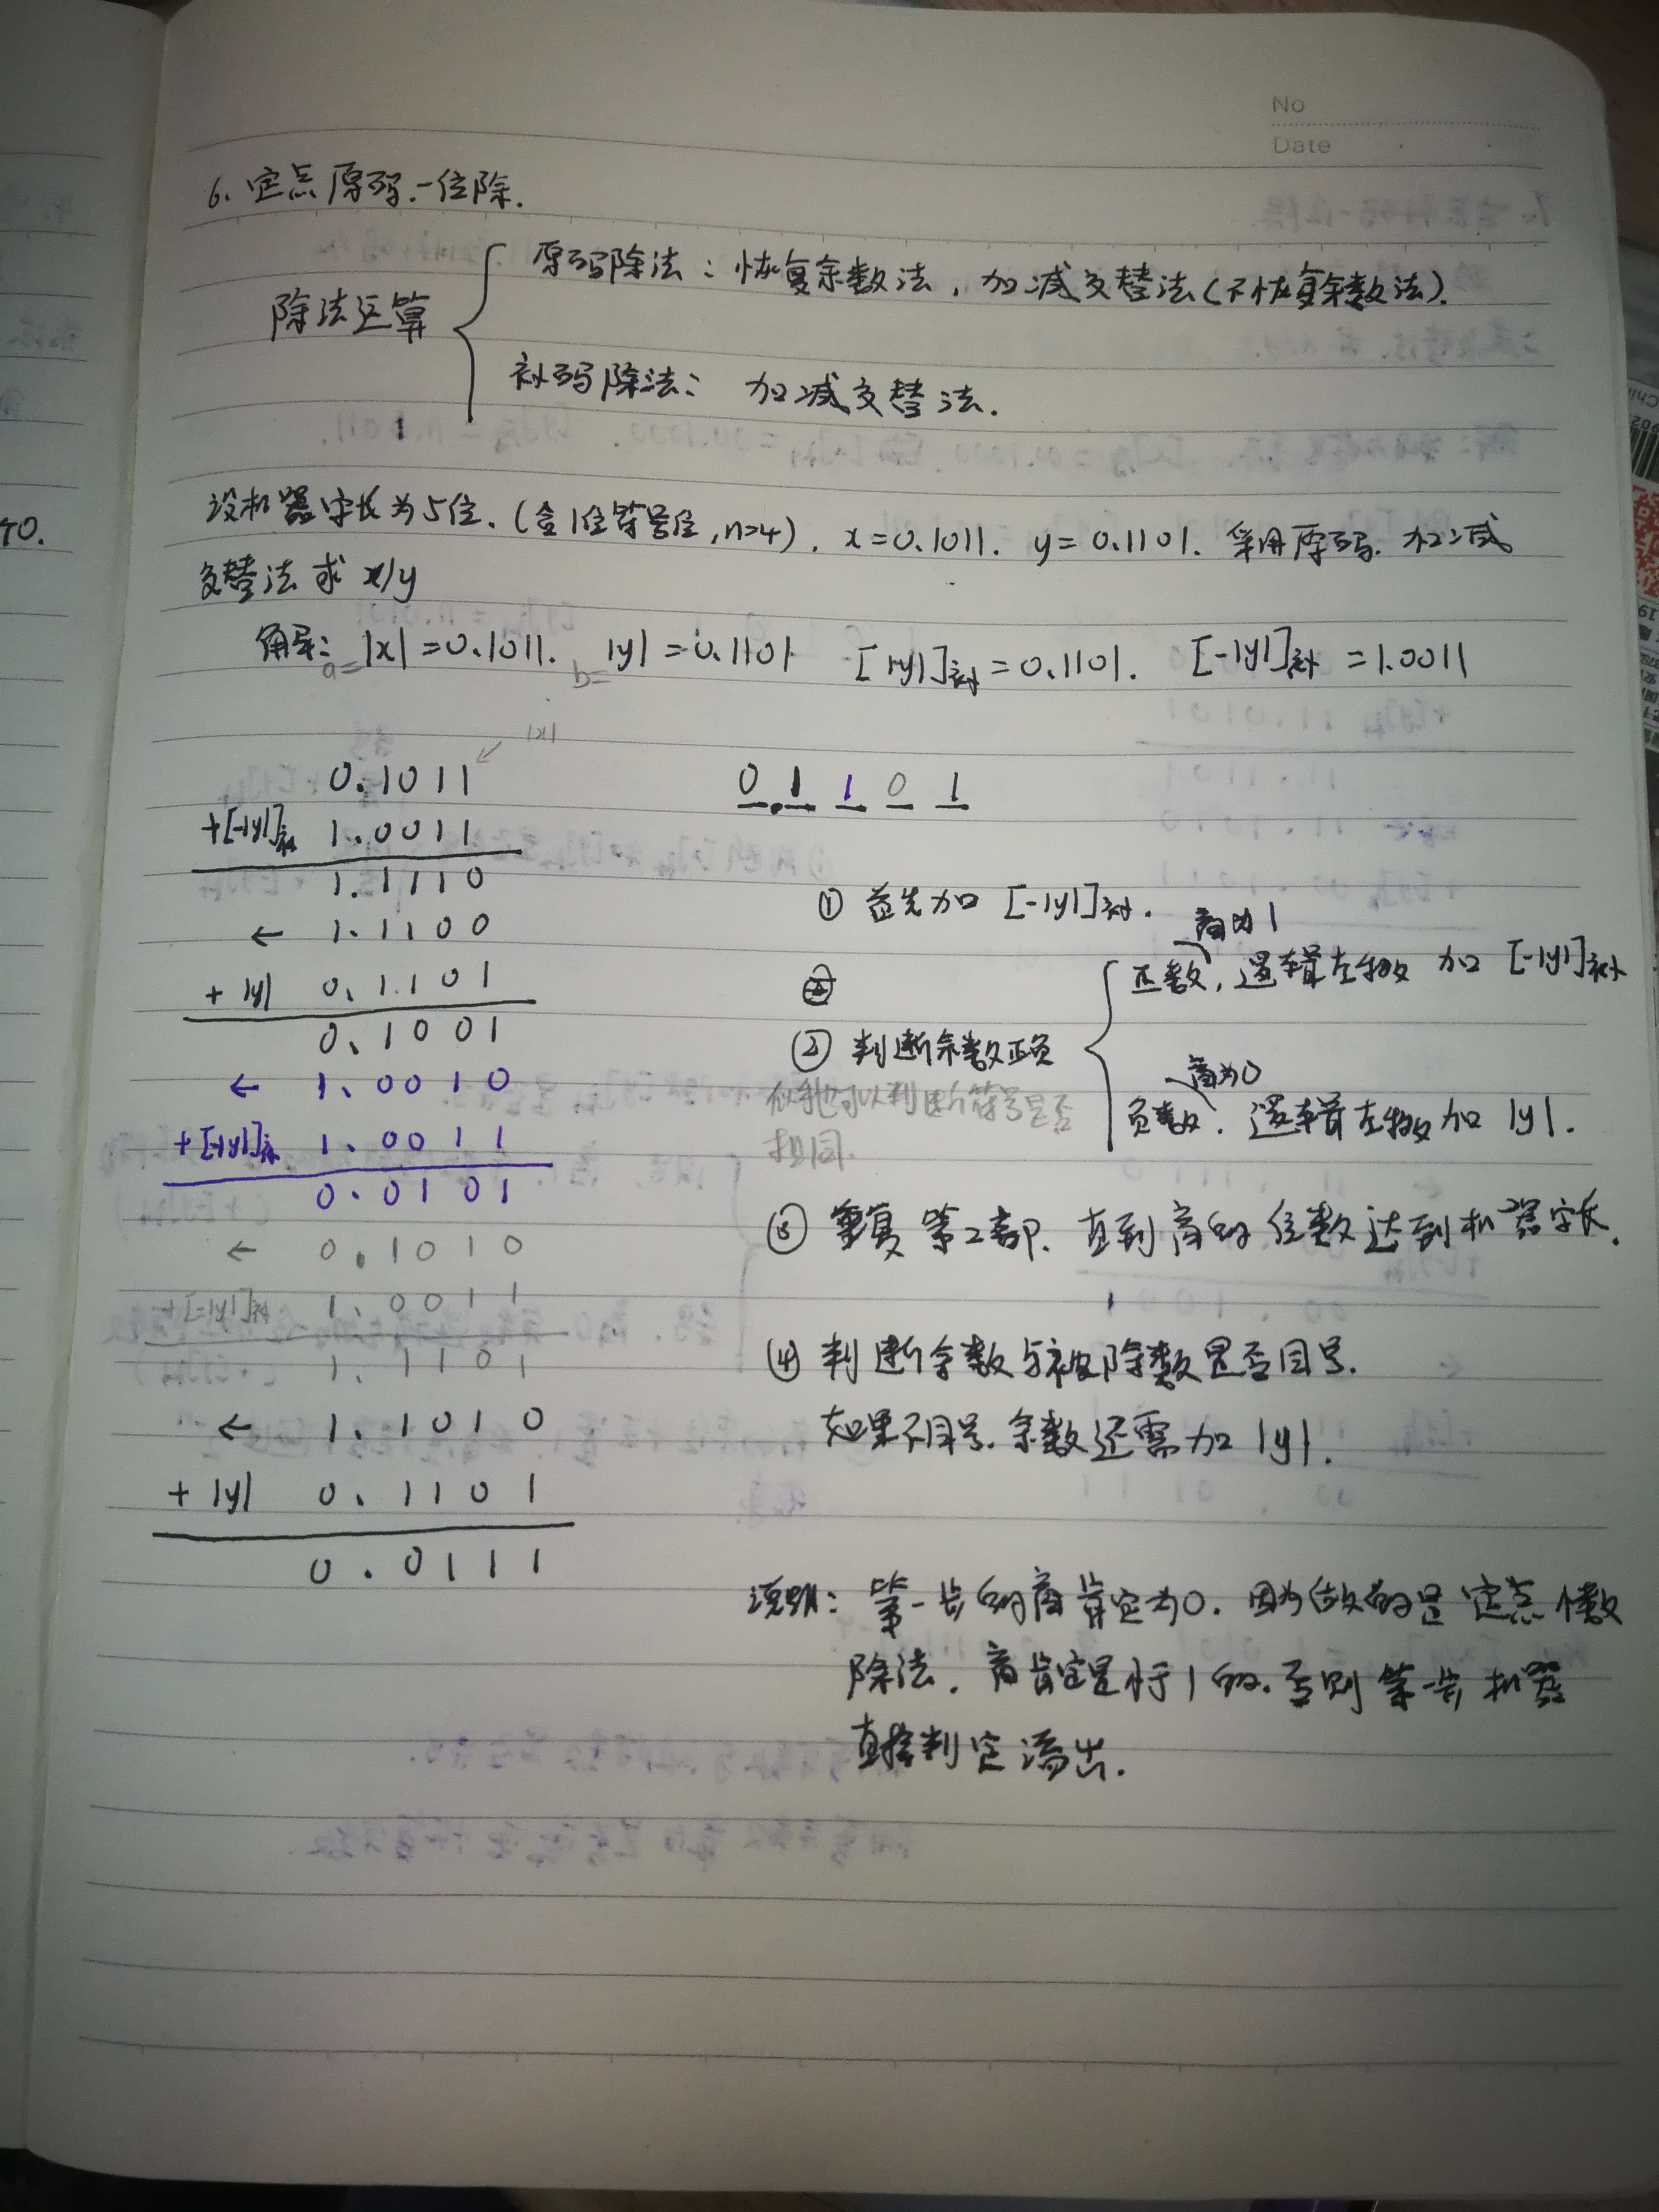 No
Date
6、定点原码一位除.
除法运算
原码除法：恢复余数法，加减交替法(不恢复余数法).
补码除法： 加减交替法.
设机器字长为5位.(含1位符号位,n=4). x=0.1011. y=0.1101. 采用原码.加减
交替法求 x/y
解: |x|=0.1011. |y|=0.1101 [|y|]补=0.1101. [-|y|]补=1.0011
a= b=
|x|
0.1011
+[-|y|]补 1.0011
1.1110
← 1.1100
+|y| 0.1101
0.1001
← 1.0010
+[-|y|]补 1.0011
0.0101
← 0.1010
+[-|y|]补 1.0011
1.1101
← 1.1010
+|y| 0.1101
0.0111
0.1101
① 首先加 [-|y|]补.
② 判断余数正负
商为1
正数, 逻辑左移 加 [-|y|]补
商为0
负数. 逻辑左移加 |y|.
也可以判断符号是否
相同.
③ 重复第2部. 直到商的位数达到机器字长.
④ 判断余数与被除数是否同号.
如果不同号.余数还需加 |y|.
说明: 第一步的商肯定为0. 因为做的是定点小数
除法. 商肯定是小于1的.否则第一步机器
直接判定溢出.
40.